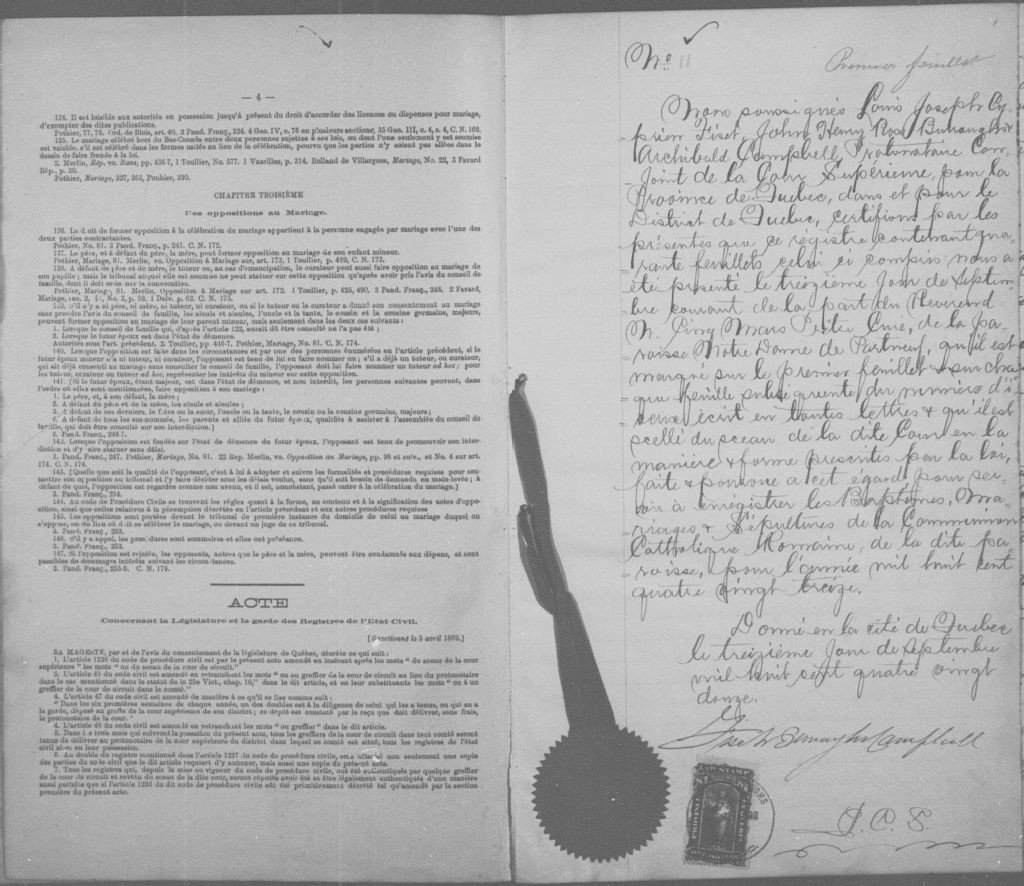 — 4 —
134. Il est loisible aux autorités en possession jusqu'à présent du droit d'accorder des licences ou dispenses pour mariage,
d'exempter des dites publications.
Pothier, 77, 78. Ord. de Blois, art. 40. 2 Pand. Franç., 324. 4 Geo. IV, c. 76 en plusieurs sections, 35 Geo. III, c. 4, s. 4, C. N. 169.
135. Le mariage célébré hors du Bas-Canada entre deux personnes sujettes à ses lois, ou dont l'une seulement y est soumise
est valable, s'il est célébré dans les formes usitées au lieu de la célébration, pourvu que les parties n'y soient pas allées dans le
dessin de faire fraude à la loi.
2. Merlin, Rép. vo. Bans, pp. 436-7, 1 Toullier, No. 577. 1 Vazeilles, p. 214. Rolland de Villargues, Mariage, No. 22, 3 Favard
Rép., p. 50.
Pothier, Mariage, 327, 363, Pouhier, 390.
CHAPITRE TROISIÈME
Des oppositions au Mariage.
136. Le droit de former opposition à la célébration du mariage appartient à la personne engagée par mariage avec l'une des
deux parties contractantes.
Pothier, No. 81. 3 Pand. Franç., p. 241. C. N. 172.
137. Le père, et à défaut du père, la mère, peut former opposition au mariage de son enfant mineur.
Pothier, Mariage, 81. Merlin, vo. Opposition à Mariage, sur art. 173, 1 Toullier, p. 489, C. N. 173.
138. A défaut de père et de mère, le tuteur ou, au cas d'émancipation, le curateur peut aussi faire opposition au mariage de
son pupille; mais le tribunal auquel elle est soumise ne peut statuer sur cette opposition qu'après avoir pris l'avis du conseil de
famille, dont il doit ordonner la convocation.
Pothier, Mariage, 81. Merlin, Opposition à Mariage sur art. 172. 1 Toullier, p. 425, 490. 3 Pand. Franç., 248. 2 Favard,
Mariage, sec. 2, §1, No. 3, p. 59. 1 Dalv. p. 62. C. N. 175.
139. S'il n'y a ni père, ni mère, ni tuteur, ni curateur, ou si le tuteur ou le curateur a donné son consentement au mariage
sans prendre l'avis du conseil de famille, les aïeuls et aïeules, l'oncle et la tante, le cousin et la cousine germains, majeurs,
peuvent former opposition au mariage de leur parent mineur, mais seulement dans les deux cas suivants:
1. Lorsque le conseil de famille qui, d'après l'article 122, aurait dû être consulté ne l'a pas été;
2. Lorsque le futur époux est dans l'état de démence.
Autorités sous l'art. précédent. 2. Toullier, pp. 446-7. Pothier, Mariage, No. 81. C. N. 174.
140. Lorsque l'opposition est faite dans les circonstances et par une des personnes énumérées en l'article précédent, si le
futur époux mineur n'a ni tuteur, ni curateur, l'opposant est tenu de lui en faire nommer un; s'il a déjà un tuteur, ou curateur,
qui ait déjà consenti au mariage sans consulter le conseil de famille, l'opposant doit lui faire nommer un tuteur ad hoc; pour
les tuteur, curateur ou tuteur ad hoc, représenter les intérêts du mineur sur cette opposition.
141. [Si le futur époux, étant majeur, est dans l'état de démence, et non interdit, les personnes suivantes peuvent, dans
l'ordre où elles sont mentionnées, faire opposition à son mariage:
1. Le père, et, à son défaut, la mère;
2. A défaut du père et de la mère, les aïeuls et aïeules;
3. A défaut de ces derniers, le frère ou la sœur, l'oncle ou la tante, le cousin ou la cousine germains, majeurs;
4. A défaut de tous les sus-nommés, les parents et alliés du futur époux, qualifiés à assister à l'assemblée du conseil de
famille, qui doit être consulté sur son interdiction.]
3. Pand. Franç., 246-7.
142. Lorsque l'opposition est fondée sur l'état de démence du futur époux, l'opposant est tenu de promouvoir son inter-
diction et d'y faire statuer sans délai.
3. Pand. Franç., 247. Pothier, Mariage, No. 81. 22 Rep. Merlin, vo. Opposition au Mariage, pp. 98 et suiv., et No. 4 sur art.
174. C. N. 174.
143. [Quelle que soit la qualité de l'opposant, c'est à lui à adopter et suivre les formalités et procédures requises pour sou-
mettre son opposition au tribunal et l'y faire décider sous les délais voulus, sans qu'il soit besoin de demande en main-levée; à
défaut de quoi, l'opposition est regardée comme non avenu, et il est, nonobstant, passé outre à la célébration du mariage.]
3. Pand. Franç., 254.
144. Au code de Procédure Civile se trouvent les règles quant à la forme, au contenu et à la signification des actes d'oppo-
sition, ainsi que celles relatives à la péremption décrétée en l'article précédent et aux autres procédures requises
145. Les oppositions sont portées devant le tribunal de première instance du domicile de celui au mariage duquel on
s'oppose, ou du lieu où doit se célébrer le mariage, ou devant un juge de ce tribunal.
3. Pand. Franç., 253.
146. S'il y a appel, les procédures sont sommaires et elles ont préséance.
3. Pand. Franç., 253.
147. Si l'opposition est rejetée, les opposants, autres que le père et la mère, peuvent être condamnés aux dépens, et sont
passibles de dommages intérêts suivant les circonstances.
3. Pand. Franç., 255-6. C. N. 179.
ACTE
Concernant la Législature et la garde des Registres de l'Etat Civil.
[Sanctionné le 5 avril 1869.]
SA MAGESTÉ, par et de l'avis du consentement de la législature de Québec, décrète ce qui suit:
1. L'article 1236 du code de procédure civil est par le présent acte amendé en insérant après les mots " du sceau de la cour
supérieure " les mots " ou du sceau de la cour de circuit."
2. L'article 45 du code civil est amendé en retranchant les mots " ou au greffier de la cour de circuit en lieu du protonotaire
dans le cas mentionné dans le statut de la 25e Vict., chap. 16," dans le dit article, et en leur substituants les mots " ou à un
greffier de la cour de circuit dans le comté."
4. L'article 47 du code civil est amendé de manière à ce qu'il se lise comme suit:
" Dans les six premières semaines de chaque année, un des doubles est à la diligence de celui qui les a tenus, ou qui en a
la garde, déposé au greffe de la cour supérieure de son district; ce dépôt est constaté par le reçu que doit délivrer, sans frais,
le protonotaire de la cour."
4. L'article 48 du code civil est amendé en retranchant les mots " ou greffier " dans le dit article.
5. Dans les trois mois qui suivront la passation du présent acte, tous les greffiers de la cour de circuit dans tout comté seront
tenus de délivrer au protonotaire de la cour supérieure du district dans lequel ce comté est situé, tous les registres de l'état
civil alors en leur possession.
6. Au double du registre mentionné dans l'article 1237 du code de procédure civile, sera attaché non seulement une copie
des parties du code civil que le dit article requiert d'y annexer, mais aussi une copie du présent acte.
7. Tous les registres qui, depuis la mise en vigueur du code de procédure civile, ont été authentiqués par quelque greffier
de la cour de circuit et revêtu du sceau de la dite cour, seront réputés avoir été et être légalement authentiqués d'une manière
aussi parfaite que si l'article 1236 du dit code de procédure civile eût été primitivement décrété tel qu'amendé par la section
première du présent acte.
No. 11
Premier feuillet
Nous soussignés Louis Joseph Cy-
prien Fiset, John Henry Ross Burroughs
Archibald Campbell Protonotaire Con-
joint de la Cour Supérieure, pour la
Province de Quebec, dans et pour le
District de Quebec, certifions par les
présentes que ce régistre contenant qua-
rante feuillets celui ci compris nous a
été présenté le treizième jour de Septem-
bre courant de la part du Reverend
M. Cinq Mars Ptre Curé, de la pa-
roisse Notre Dame de Portneuf, qu'il est
marqué sur le premier feuillet & sur cha-
que feuille subséquente du numéro d'i-
ceux écrit en toutes lettres & qu'il est
scellé du sceau de la dite Cour en la
manière & forme prescrites par la loi,
faite & pourvue à cet égard pour ser-
vir à enregistrer les Baptêmes, Ma-
riages & Sépultures de la Communion
Catholique Romaine, de la dite pa-
roisse, pour l'année mil huit cent
quatre vingt treize.
Donné en la cité de Quebec
le treizième jour de Septembre
mil huit sept quatre vingt
douze.
Fiset Burroughs Campbell
P. C. S.
LAW STAMP
PROVINCE
QUEBEC